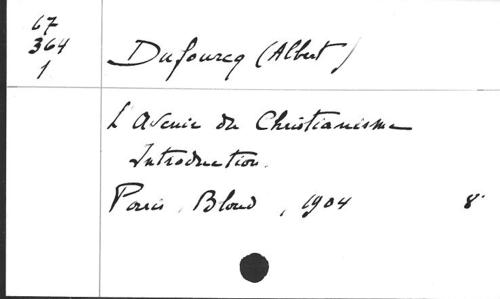 67
364
1
Dufourcq (Albert)
L'Avenir du Christianisme
Introduction.
Paris, Bloud, 1904 8°